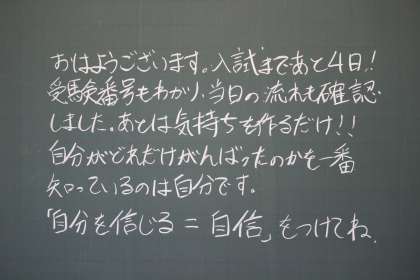 おはようございます。入試まであと4日!
受験番号もわかり、当日の流れも確認
しました。あとは気持ちを作るだけ!!
自分がどれだけがんばったのかを一番
知っているのは自分です。
「自分を信じる = 自信」をつけてね.